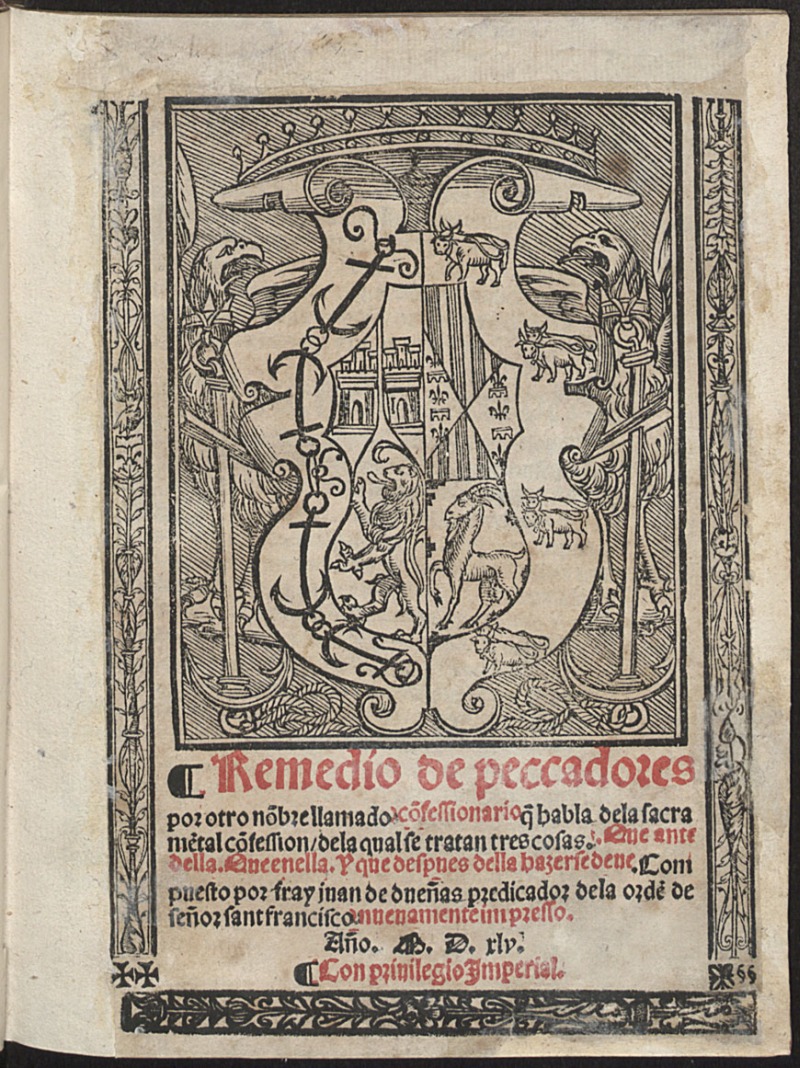 ¶ Remedio de peccadores
por otro nõbre llamado cõfessionario q̃ habla dela sacra
mẽtal cõfession/dela qual se tratan tres cosas. Que ante
della. Que enella. Y que despues della hazerse deue. Com
puesto por fray juan de dueñas predicador dela ordẽ de
señor sant francisco nueuamente impresso.
Año. M. D. xlv.
¶ Con priuilegio Imperial.